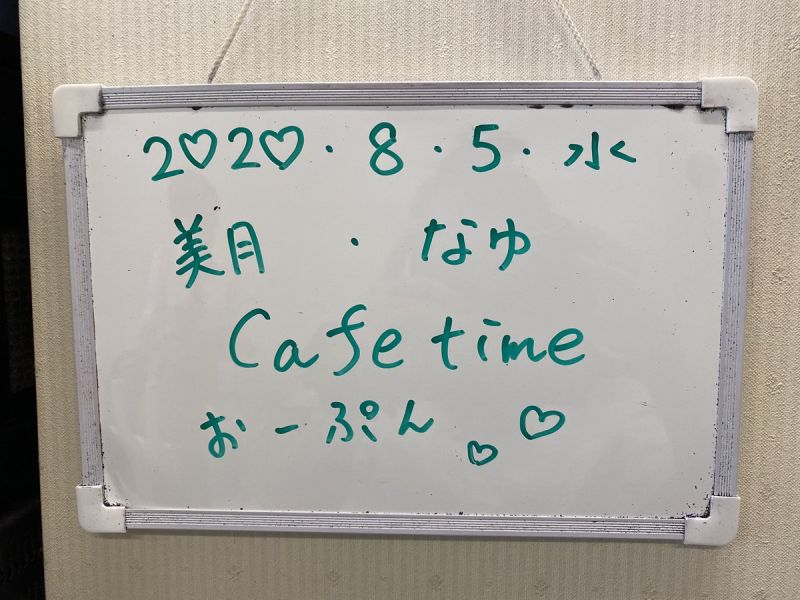 2♡2♡・8・5・水
美月・なゆ
Cafe time
おーぷん。♡♡